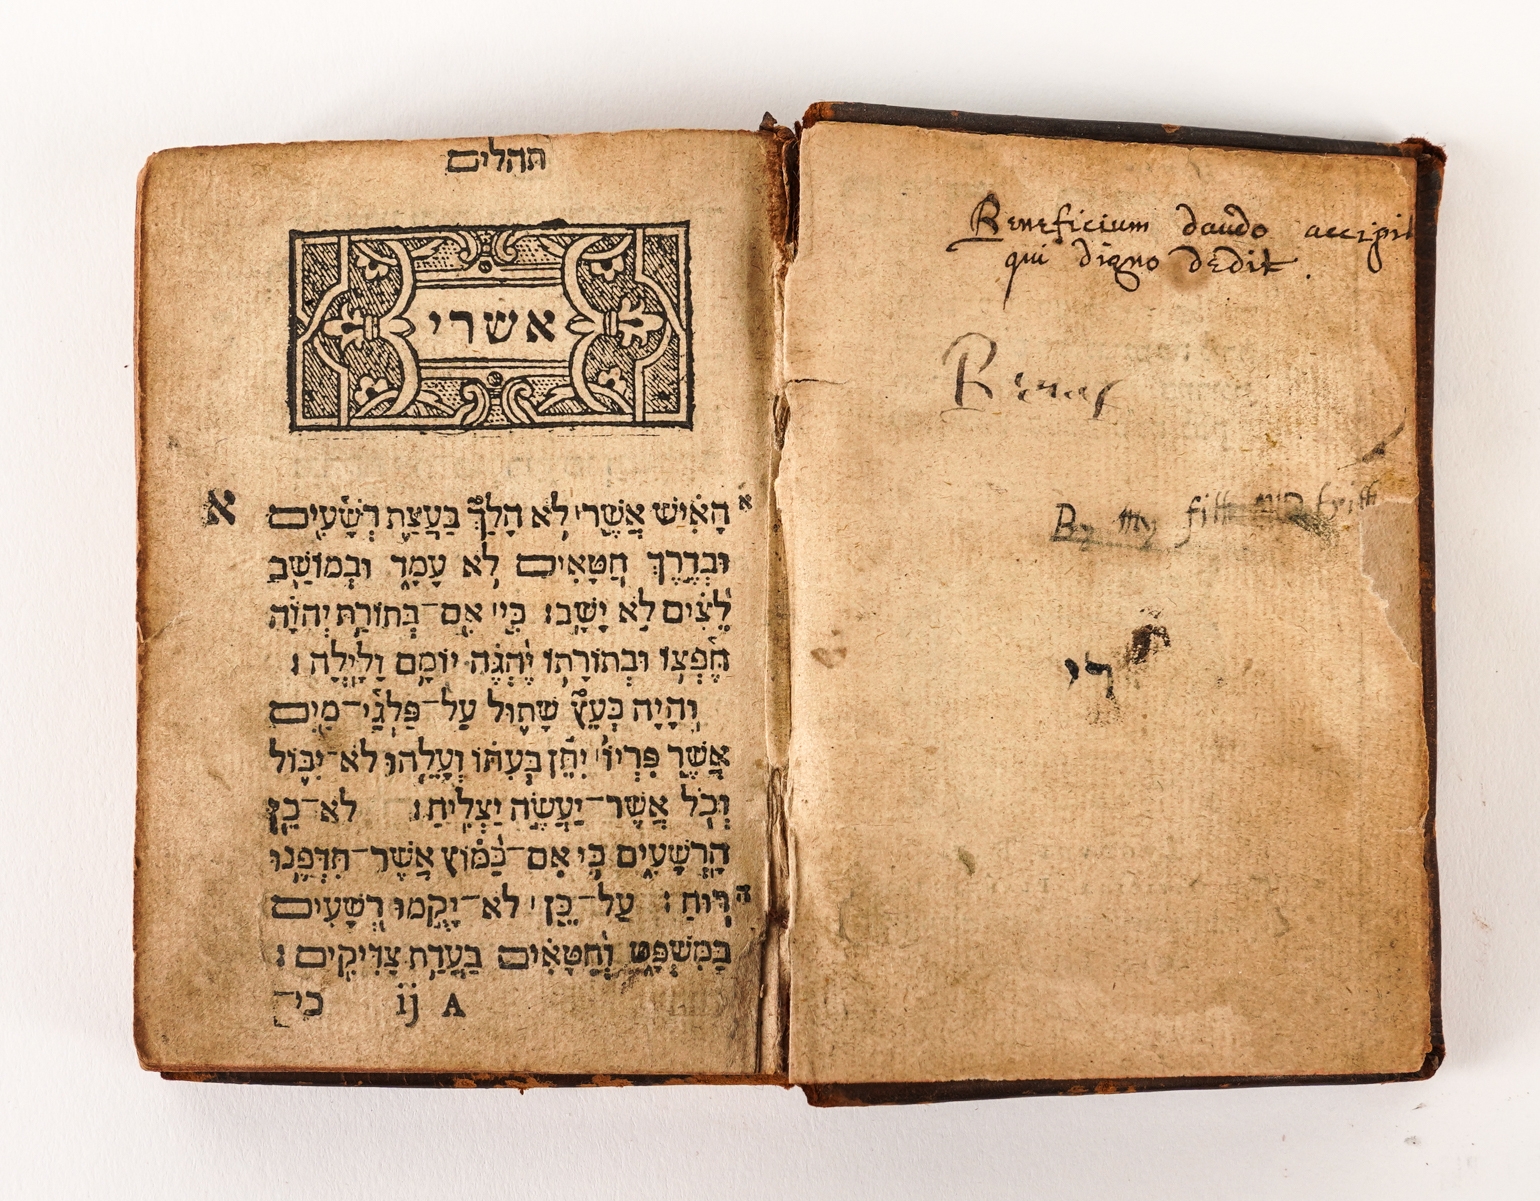 תהלים
אשרי
א
הָאִישׁ אֲשֶׁר לֹא הָלַךְ בַּעֲצַת רְשָׁעִים
וּבְדֶרֶךְ חַטָּאִים לֹא עָמָד וּבְמוֹשַׁב
לֵצִים לֹא יָשָׁב׃ כִּי אִם־בְּתוֹרַת יְהוָֹה
חֶפְצוֹ וּבְתוֹרָתוֹ יֶהְגֶּה יוֹמָם וָלָיְלָה׃
וְהָיָה כְּעֵץ שָׁתוּל עַל־פַּלְגֵי־מָיִם
אֲשֶׁר פִּרְיוֹ יִתֵּן בְּעִתּוֹ וְעָלֵהוּ לֹא־יִבּוֹל
וְכֹל אֲשֶׁר־יַעֲשֶׂה יַצְלִיחַ׃ לֹא־כֵן
הָרְשָׁעִים כִּי אִם־כַּמּוֹץ אֲשֶׁר־תִּדְּפֶנּוּ
ה רוּחַ׃ עַל־כֵּן לֹא־יָקֻמוּ רְשָׁעִים
בַּמִּשְׁפָּט וְחַטָּאִים בַּעֲדַת צַדִּיקִים׃
A ij כי־
Beneficium dando accipit
qui digno dedit.
By my
רי